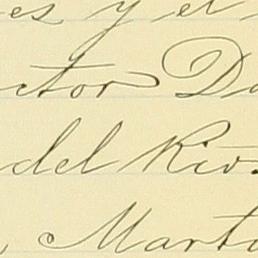 es y el
ctor Do
del Rio.
, Marto